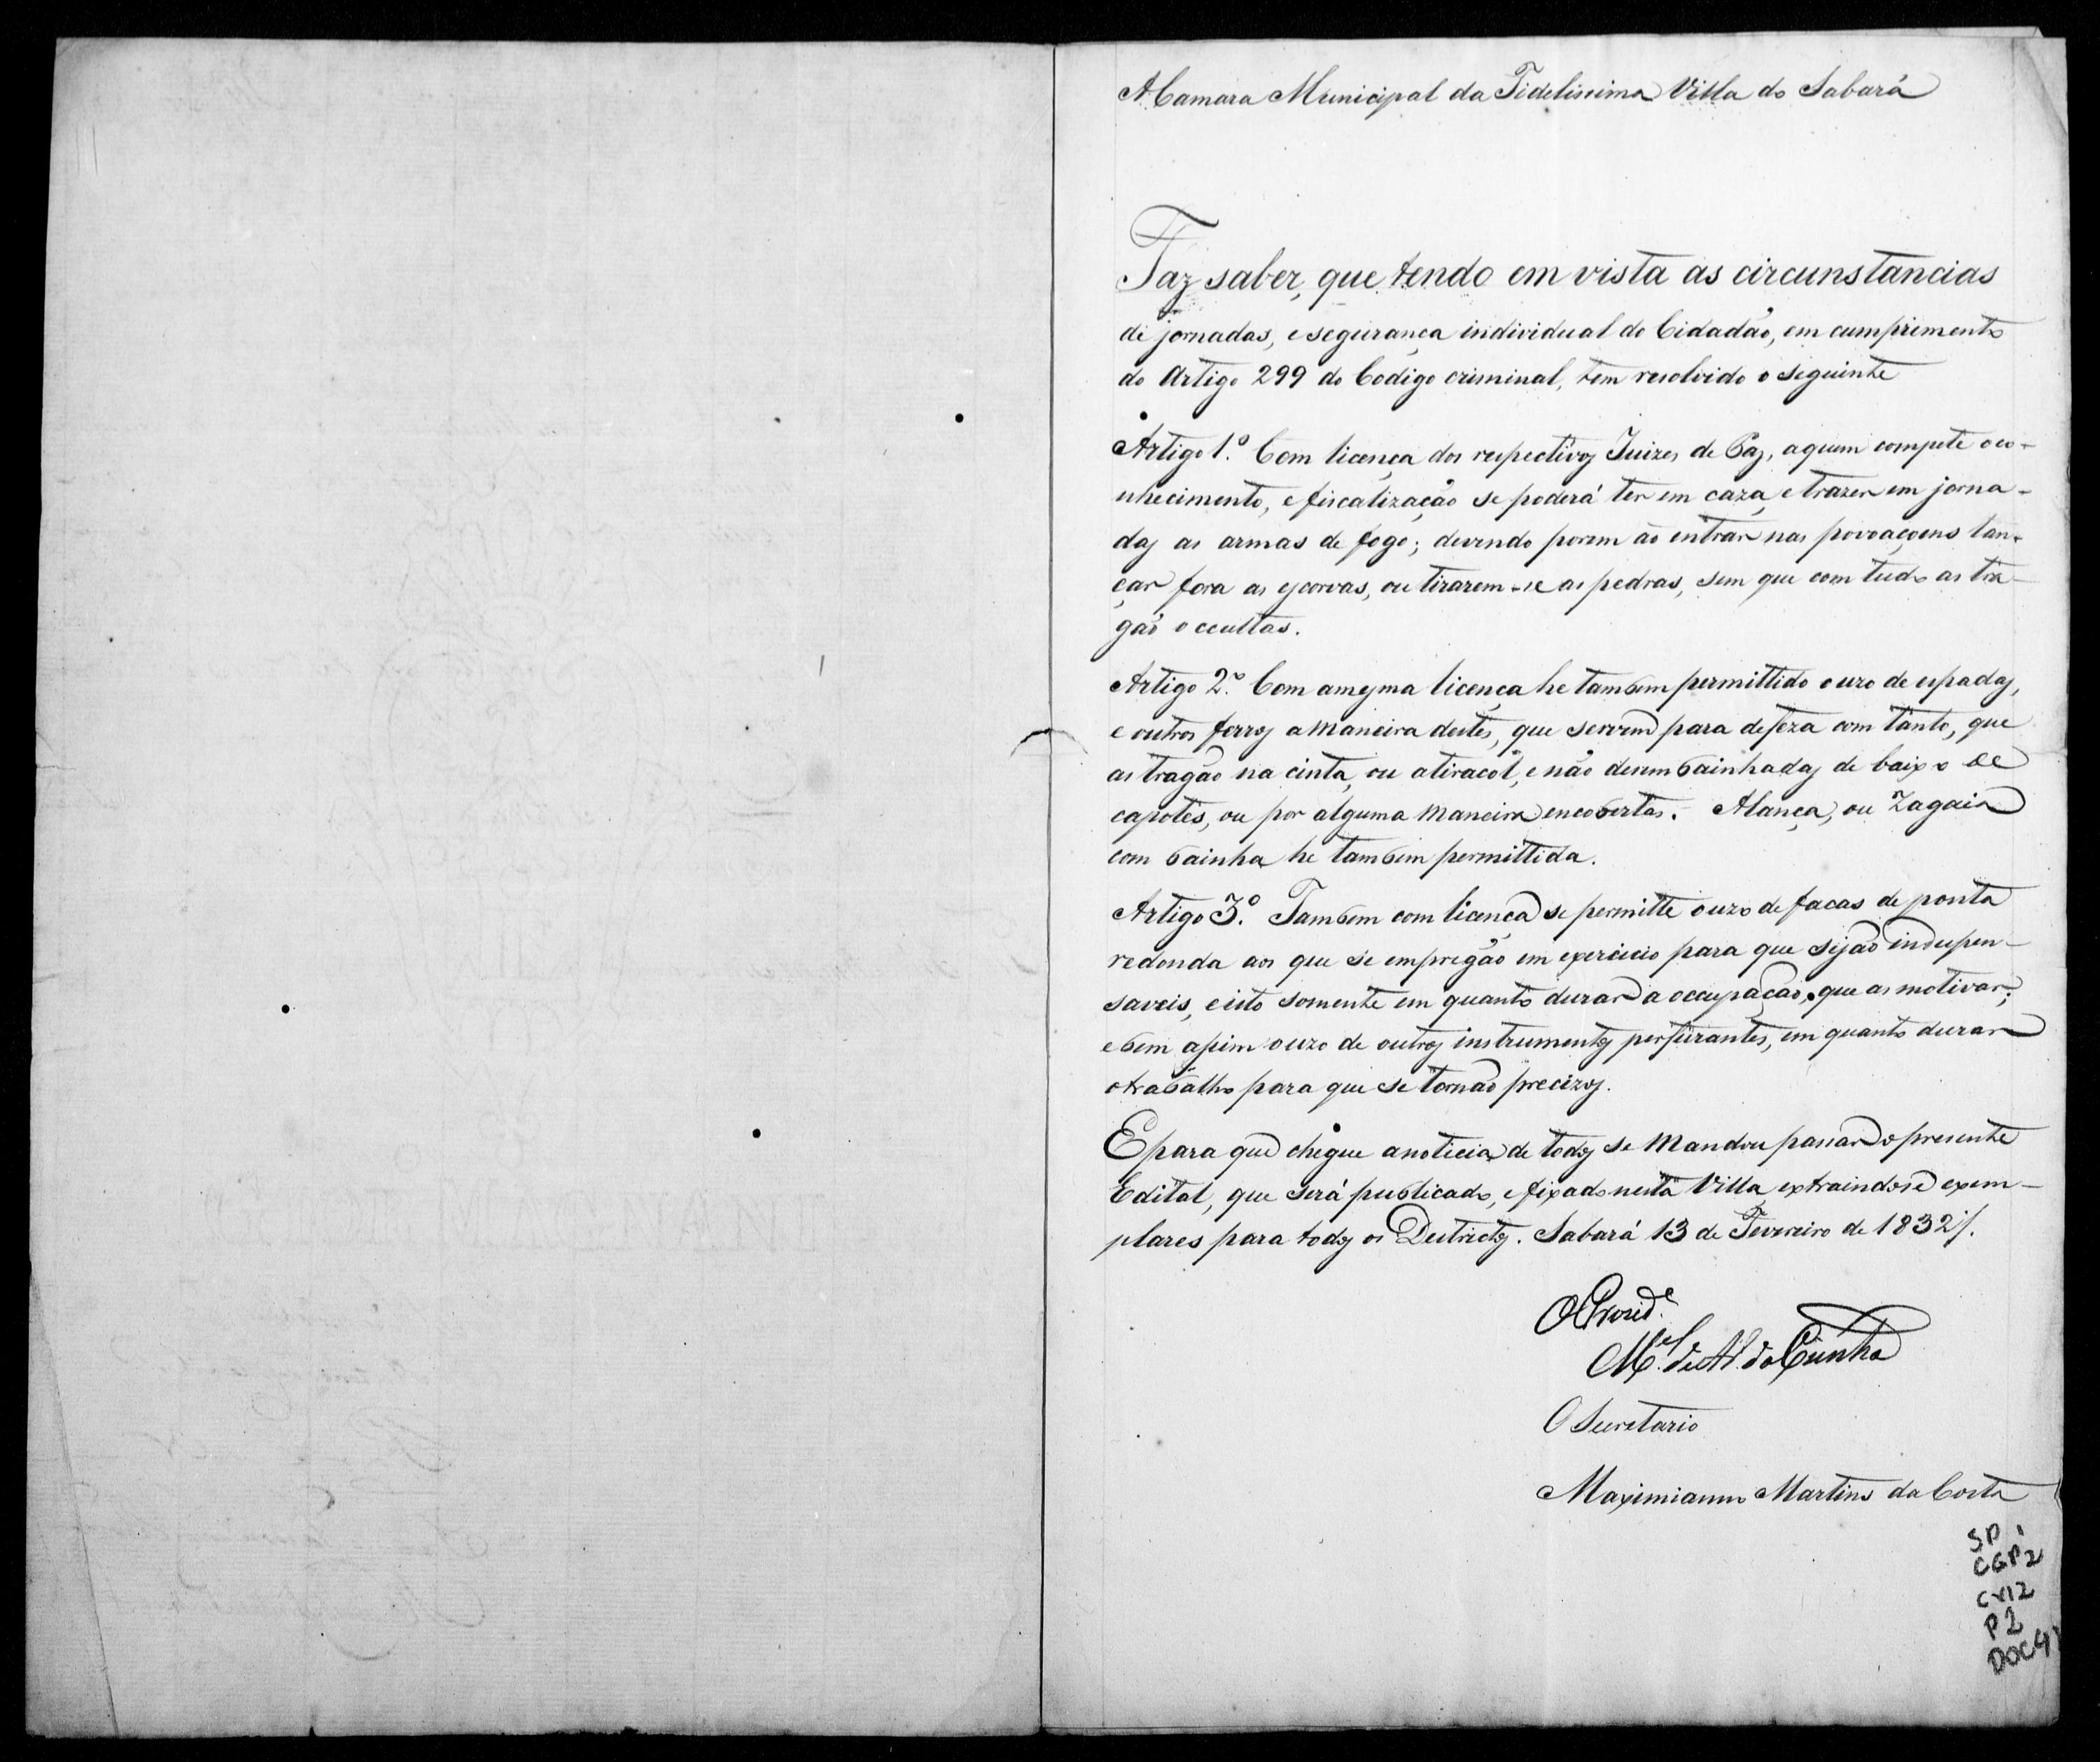 A Camara Municipal da Fidelissima Villa do Sabará
Faz saber, que tendo em vista as circunstancias
de jornadas, e segurança individual do Cidadão, em cumprimento
do Artigo 299 do Codigo criminal, tem resolvido o seguinte
Artigo 1.º Com licença dos respectivos Juizes de Paz, a quem compete o co-
nhecimento, e fiscalização se poderá ter em caza, e trazer em jorna-
das as armas de fogo; devendo porem ao entrar nas povoaçoens lan-
çar fora as escorvas, ou tirarem-se as pedras, sem que com tudo as tra-
gão occultas.
Artigo 2.º Com a mesma licença he tambem permittido o uzo de espadas,
e outros ferros a maneira destes, que servem para defeza com tanto, que
as tragão na cinta, ou atiracol, e não desembainhadas de baixo de
capotes, ou por alguma maneira encobertas. A lança, ou Zagaia
com bainha he tambem permittida.
Artigo 3.º Tambem com licença se permitte o uzo de facas de ponta
redonda aos que se empregão em exercicio para que sejão indispen-
saveis, e isto somente em quanto durar a occupação, que as motivar;
e bem assim o uzo de outros instrumentos perfurantes, em quanto durar
o trabalho para que se tornão precizos.
E para que chegue a noticia de todos se mandou passar o presente
Edital, que será publicado, e fixado nesta Villa, extraindose exem-
plares para todos os Destrictos. Sabará 13 de Fevereiro de 1832/.
O Presid.e
M.el de Ar. da Cunha
O Secretario
Maximianno Martins da Costa
SP 1
CGP2
CX12
P2
DOC41